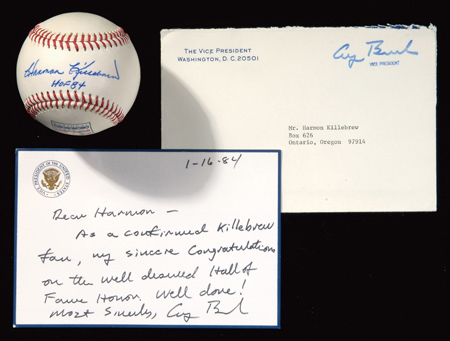 Harmon Killebrew
HOF 84
THE VICE PRESIDENT
WASHINGTON, D.C. 20501
Gg Bush
VICE PRESIDENT
Mr. Harmon Killebrew
Box 626
Ontario, Oregon 97914
1-16-84
Dear Harmon —
As a confirmed Killebrew
fan, my sincere Congratulations
on the well deserved Hall of
Fame Honor. Well done!
Most Sincerely, Gg Bush